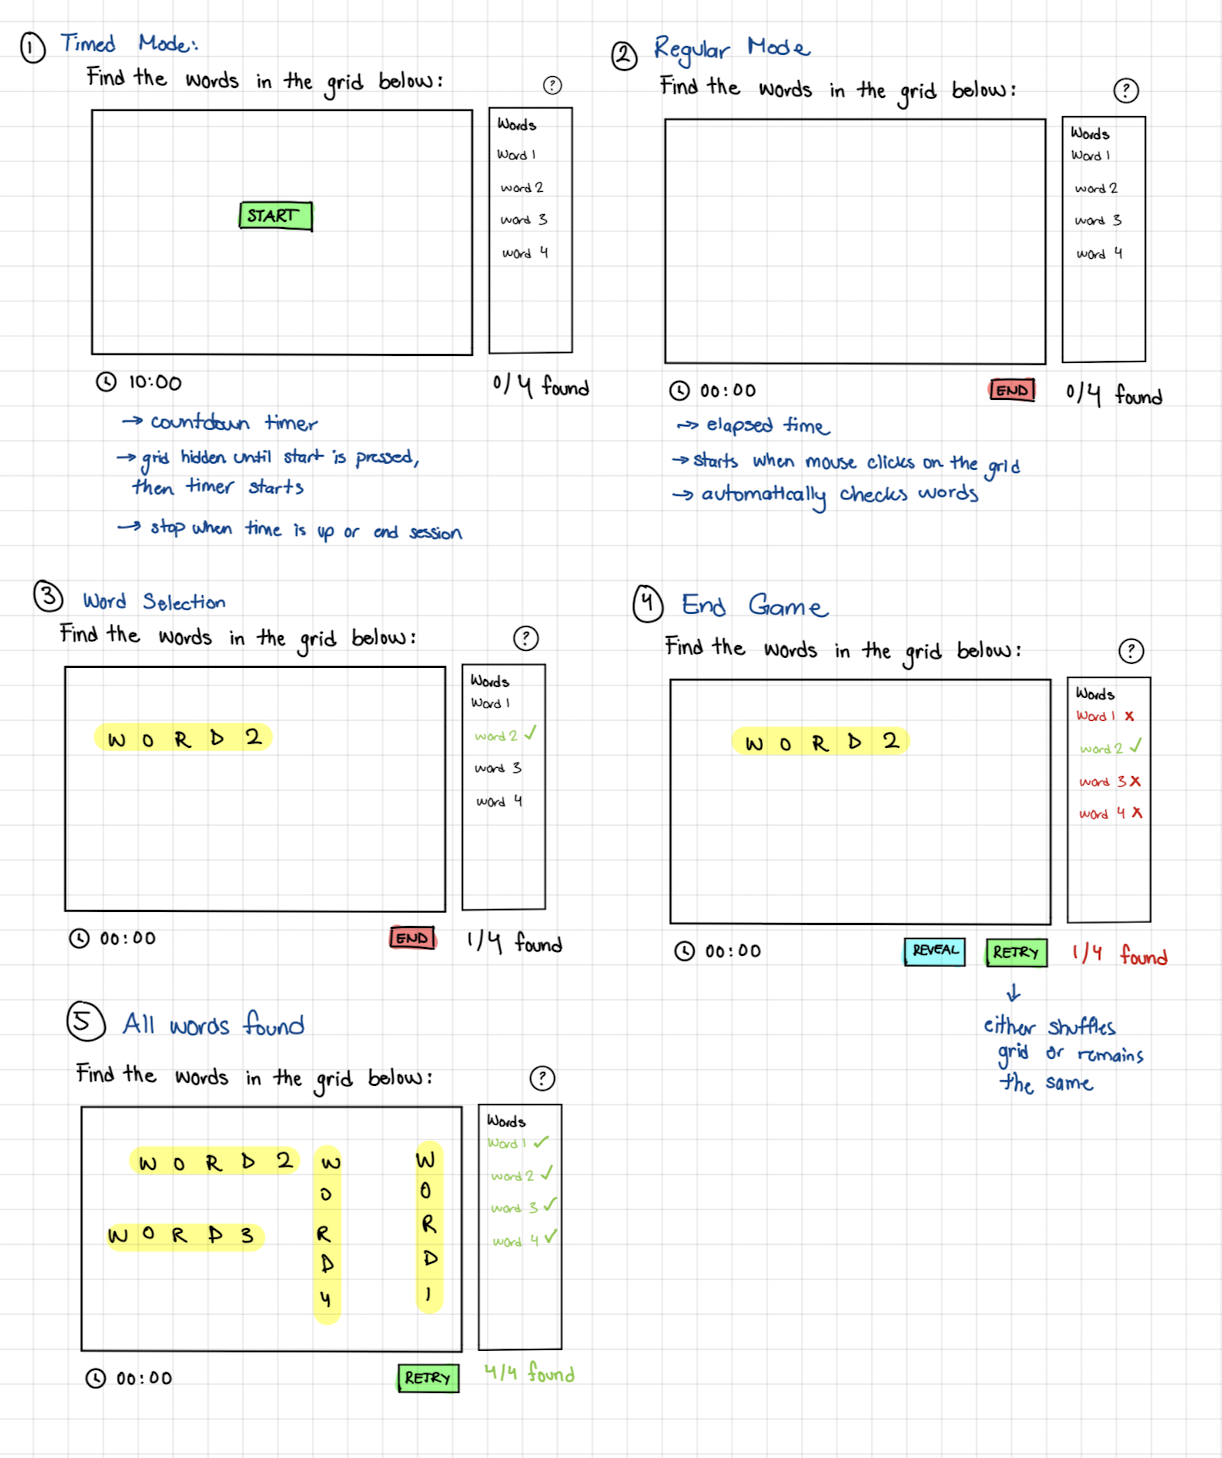 1 Timed Mode:
Find the words in the grid below:
?
START
Words
Word 1
word 2
word 3
word 4
10:00
0/4 found
→ countdown timer
→ grid hidden until start is pressed,
then timer starts
→ stop when time is up or end session
2 Regular Mode
Find the words in the grid below:
?
Words
Word 1
word 2
word 3
word 4
00:00
END
0/4 found
→ elapsed time
→ starts when mouse clicks on the grid
→ automatically checks words
3 Word Selection
Find the words in the grid below:
?
WORD2
Words
Word 1
word 2 ✓
word 3
word 4
00:00
END
1/4 found
4 End Game
Find the words in the grid below:
?
WORD2
Words
Word 1 x
word 2 ✓
word 3 x
word 4 x
00:00
REVEAL
RETRY
1/4 found
↓
either shuffles
grid or remains
the same
5 All words found
Find the words in the grid below:
?
WORD2
WORD3
WORD4
WORD1
Words
Word 1 ✓
word 2 ✓
word 3 ✓
word 4 ✓
00:00
RETRY
4/4 found